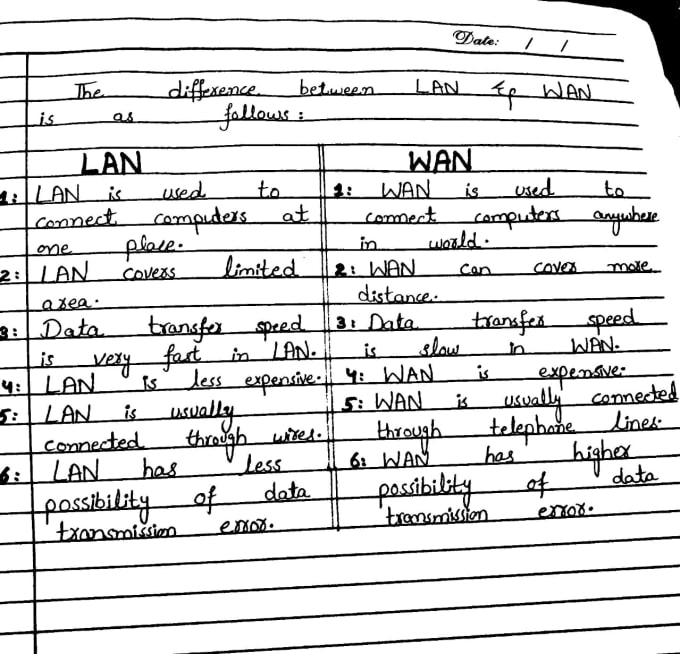 Date: / /
The difference between LAN & WAN
is as follows:
LAN
1: LAN is used to
connect computers at
one place.
2: LAN covers limited
area.
3: Data transfer speed
is very fast in LAN.
4: LAN is less expensive.
5: LAN is usually
connected through wires.
6: LAN has less
possibility of data
transmission error.
WAN
1: WAN is used to
connect computers anywhere
in world.
2: WAN can cover more
distance.
3: Data transfer speed
is slow in WAN.
4: WAN is expensive.
5: WAN is usually connected
through telephone lines.
6: WAN has higher
possibility of data
transmission error.